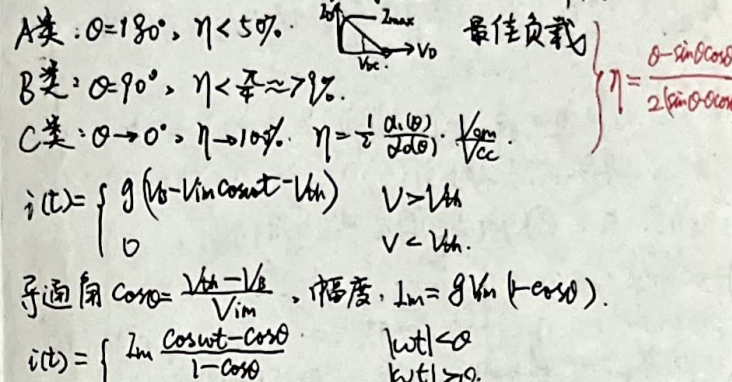 A类:θ=180°, η<50%. I_D I_max V_DC V_D 最佳负载
B类:θ=90°, η<π/4≈79%.
C类:θ→0°, η→100%. η=1/2 α₁(θ)/α₀(θ) · V_om/V_cc.
η= θ-sinθcosθ / 2(sinθ-θcos
i(t)= { g(V_B-V_im cosωt-V_th) V>V_th
0 V<V_th.
导通角 cosθ= (V_th-V_B)/V_im , 幅度, I_m=gV_im(1-cosθ).
i(t)= { I_m (cosωt-cosθ)/(1-cosθ) |ωt|<θ
|ωt|>θ.